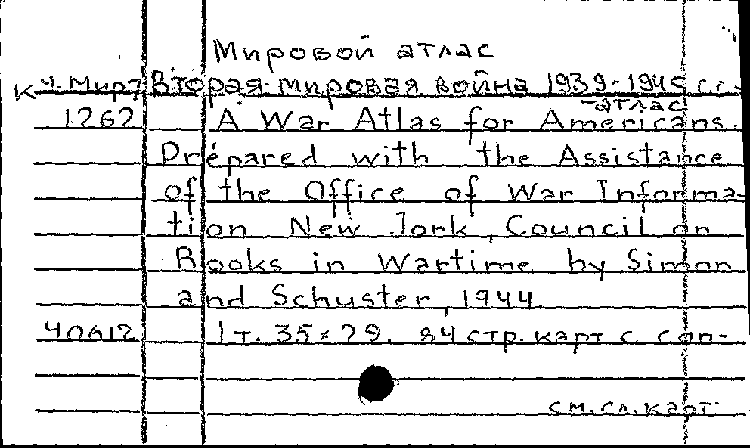 Мировой атлас
К ч. Мир7 Вторая мировая война 1939-1945 г.г.
-атлас
1262 A War Atlas for Americans.
Prepared with the Assistance
of the Office of War Informa-
tion New Jork, Council on
Books in Wartime by Simon
and Schuster, 1944
40612 1т. 35×29. 84 стр. карт с соп-
см. сл. карт